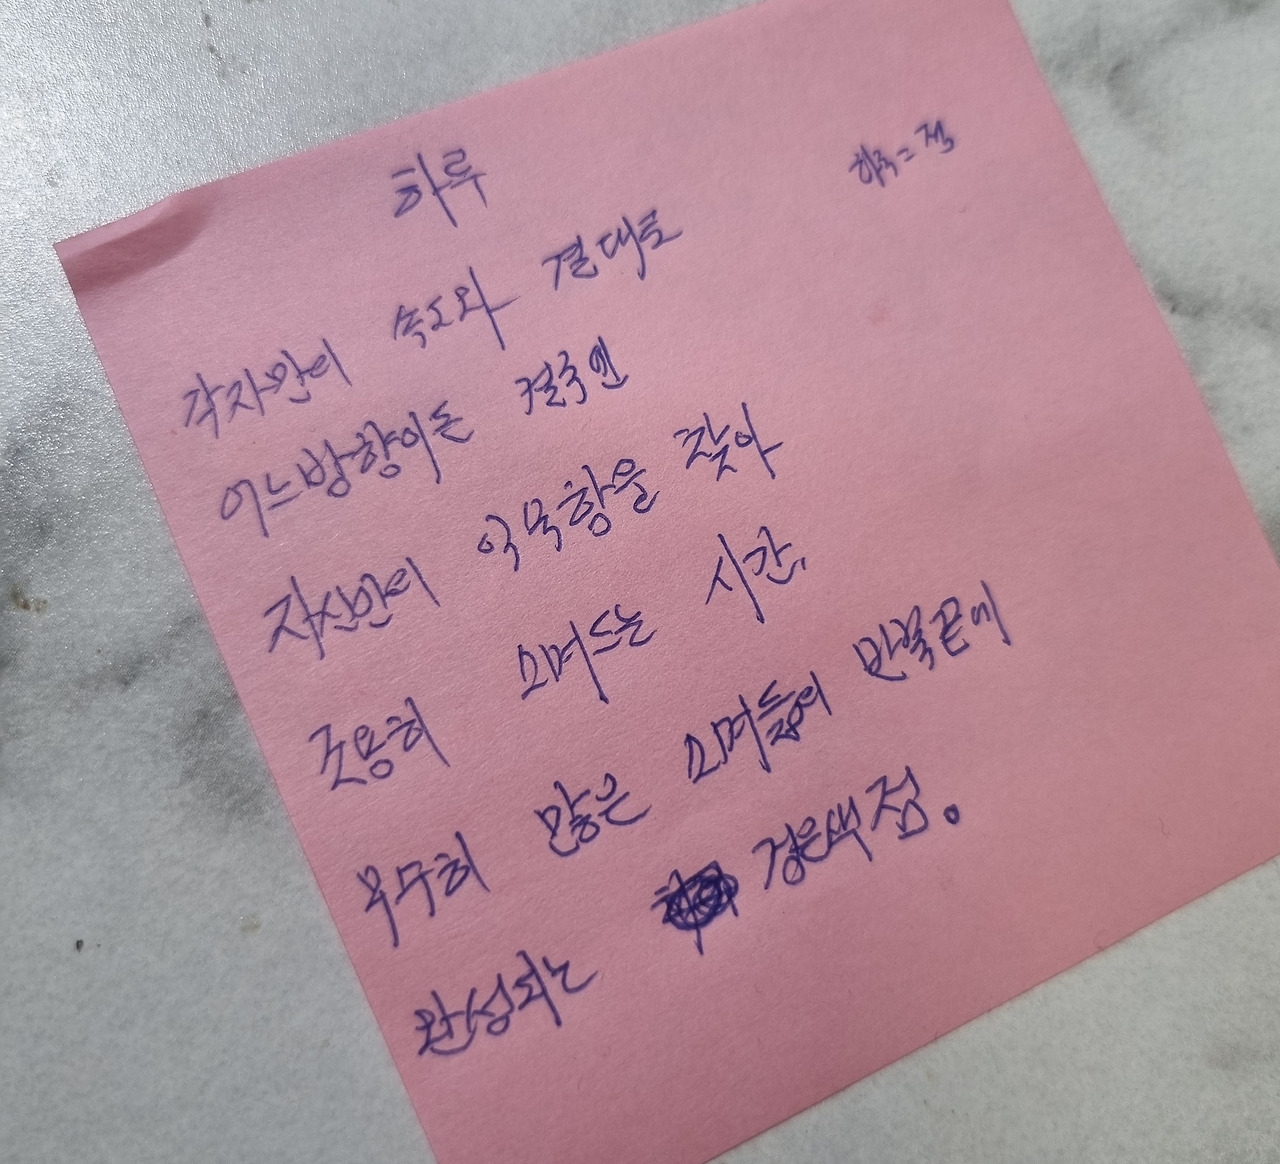 하루
하루=점
각자만의 속도와 결대로
어느방향이든
자신만의 익숙함을 찾아
조용히 스며드는 시간.
무수히 많은 스며듦의 반복끝에
완성되는 검은색 점.